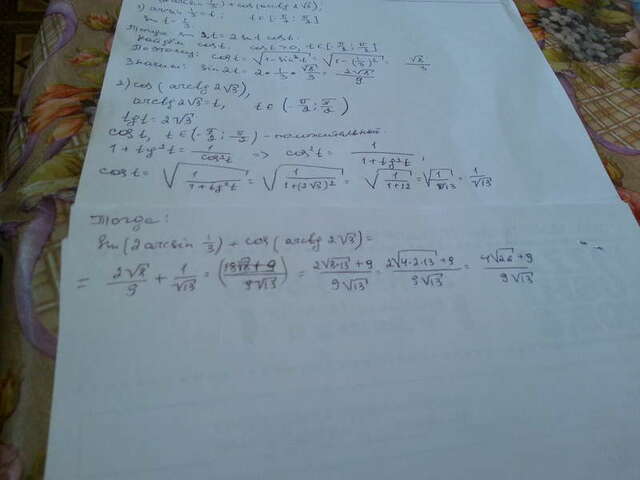 arcsin 1/3) + cos(arctg 2√3);
1) arcsin 1/3 = t, t∈[-π/2; π/2]
sin t = 1/3
Тогда sin 2t = 2 sin t cos t.
Найдём cos t. cos t > 0, t∈[-π/2; π/2]
Поэтому cos t = √(1-sin²t) = √(1-(1/3)²) = √8/3
Значит: sin 2t = 2·1/3·√8/3 = 2√8/9
2) cos(arctg 2√3),
arctg 2√3 = t, t∈(-π/2; π/2)
tg t = 2√3
cos t, t∈(-π/2; π/2) - положительный
1 + tg²t = 1/cos²t => cos²t = 1/(1+tg²t),
cos t = √(1/(1+tg²t)) = √(1/(1+(2√3)²)) = √(1/(1+12)) = √(1/13) = 1/√13
Тогда:
sin(2arcsin 1/3) + cos(arctg 2√3) =
= 2√8/9 + 1/√13 = = (2√(8·13)+9)/(9√13) = (2√(4·2·13)+9)/(9√13) = (4√26+9)/(9√13)